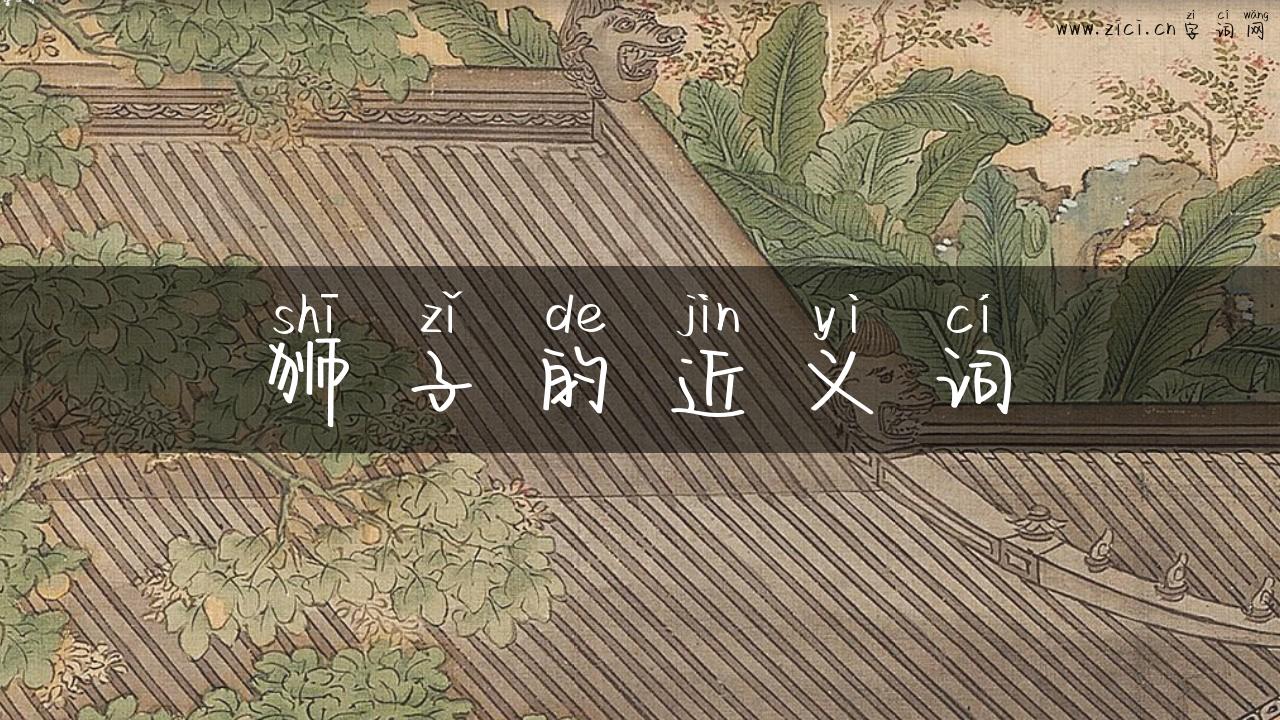 zì cí wǎng
www.zici.cn 字词网
shī zǐ de jìn yì cí
狮子的近义词